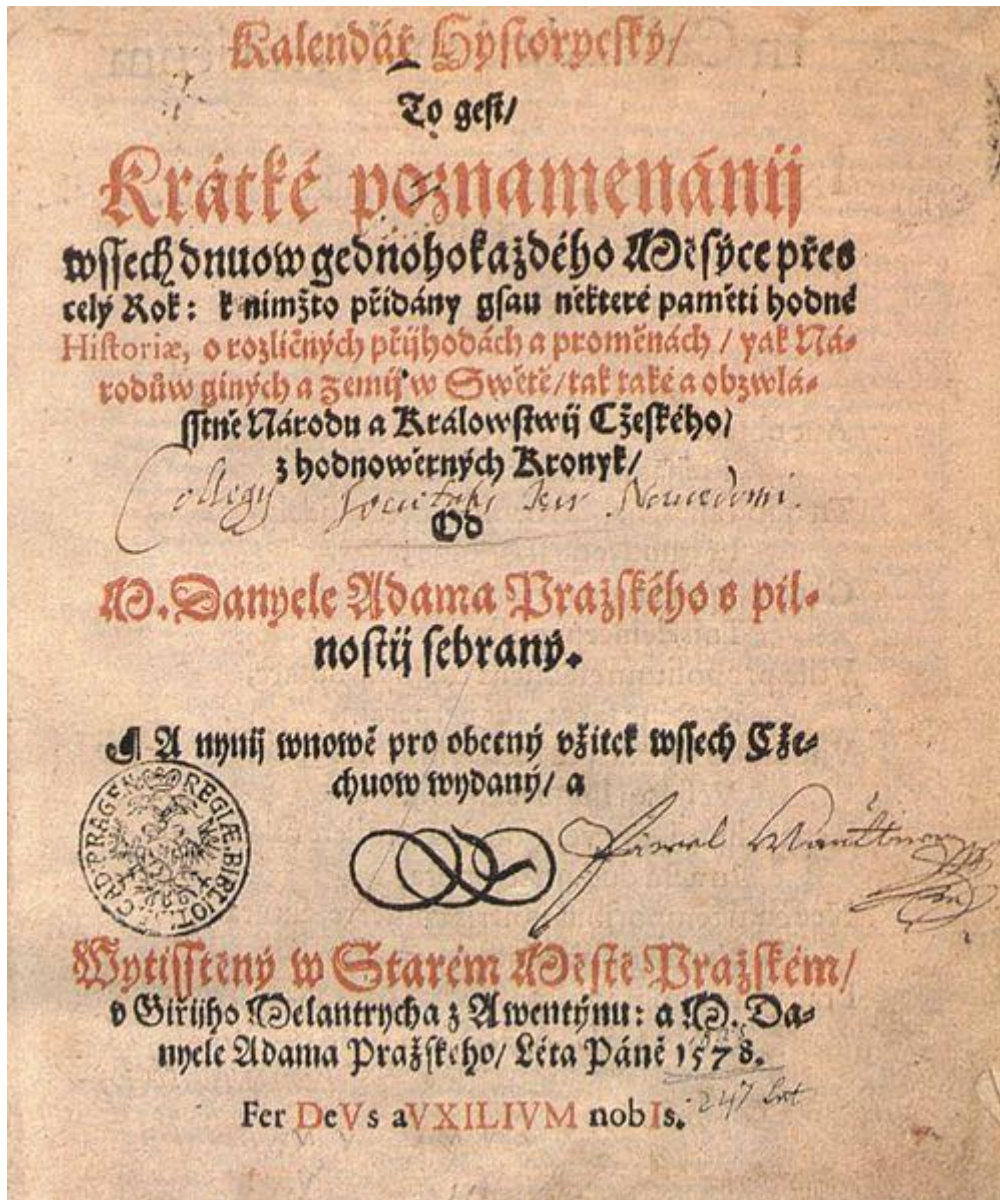 Kalendář Hystorycký/
To gest/
Krátké poznamenánij
wssech dnuow gednohokaždého Měsýce přes
celý Rok: k nimžto přidány gsau některé paměti hodné
Historiæ, o rozličných přijhodách a proměnách / yak Ná-
rodůw giných a zemij w Swětě/ tak také a obzwlá-
sstně Národu a Králowstwij Cžeského/
z hodnowěrných Kronyk/
Collegij Societatis Iesu
Od
M. Danyele Adama Pražského s pil-
nostij sebraný.
¶ A nynij wnowě pro obecný vžitek wssech Cže-
chuow wydaný/ a
REGIÆ. BIBLIOT. CAD. PRAGEN.
Wytisstěný w Starém Městě Pražském/
v Giřijho Melantrycha z Awentýnu: a M. Da-
nyele Adama Pražského/ Léta Páně 1578.
247 let
Fer DeVs aVXILIVM nobIs.